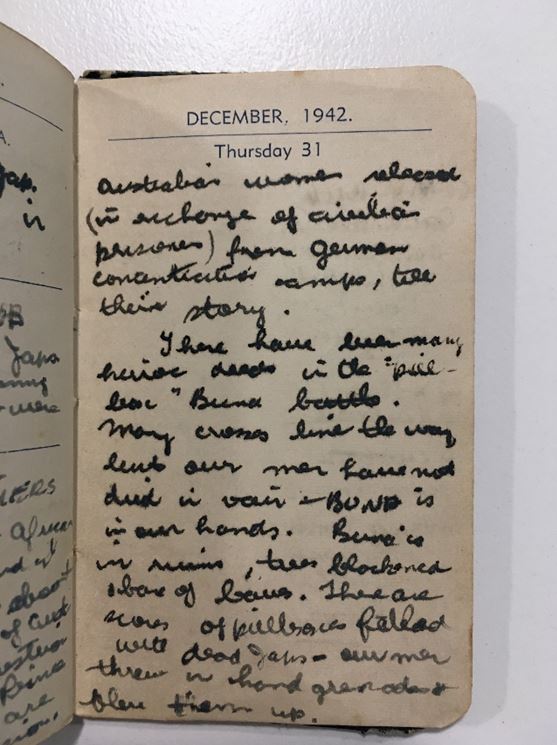 A.
Jap.
in
Japs
were
DECEMBER, 1942.
Thursday 31
Australian women released
(in exchange of civilian
prisoners) from German
concentration camps, tell
their story.
There have been many
heroic deeds in the "pill-
box" Buna battle.
Many crosses line the way
but our men have not
died in vain - BUNA is
in our hands. Buna is
in ruins, trees blackened
&bare of leaves. There are
scores of pillboxes filled
with dead Japs - our men
threw in hand grenades &
blew them up.